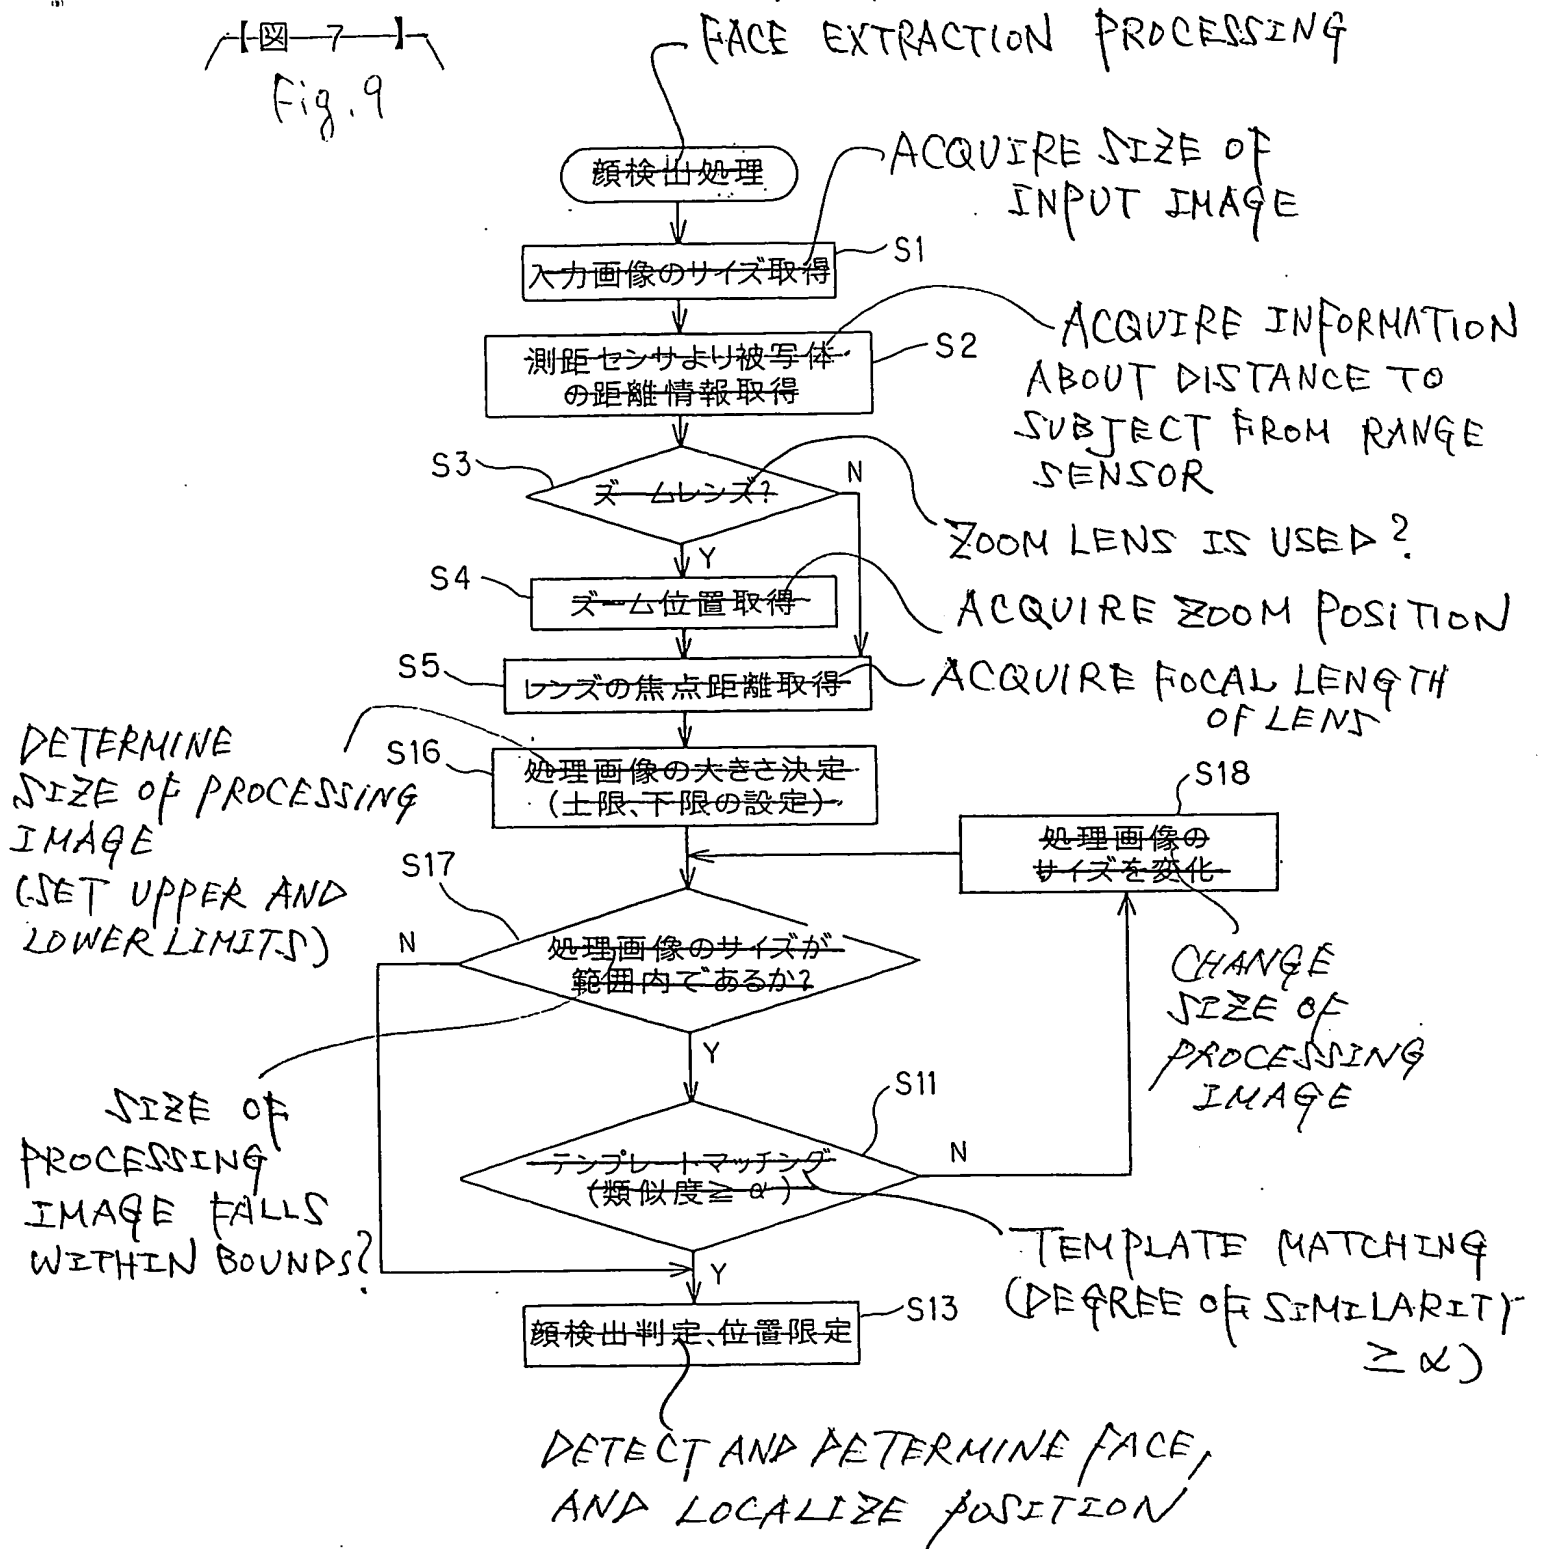 【図 7 】
Fig. 9
FACE EXTRACTION PROCESSING
顔検出処理
ACQUIRE SIZE OF
INPUT IMAGE
S1
入力画像のサイズ取得
S2
測距センサより被写体
の距離情報取得
ACQUIRE INFORMATION
ABOUT DISTANCE TO
SUBJECT FROM RANGE
SENSOR
S3
ズームレンズ?
N
Y
ZOOM LENS IS USED?
S4
ズーム位置取得
ACQUIRE ZOOM POSITION
S5
レンズの焦点距離取得
ACQUIRE FOCAL LENGTH
OF LENS
DETERMINE
SIZE OF PROCESSING
IMAGE
(SET UPPER AND
LOWER LIMITS)
S16
処理画像の大きさ決定
(上限、下限の設定)
S18
処理画像の
サイズを変化
CHANGE
SIZE OF
PROCESSING
IMAGE
S17
N
処理画像のサイズが
範囲内であるか?
Y
SIZE OF
PROCESSING
IMAGE FALLS
WITHIN BOUNDS?
S11
テンプレートマッチング
(類似度≧α)
N
Y
TEMPLATE MATCHING
(DEGREE OF SIMILARITY
≥ α)
S13
顔検出判定、位置限定
DETECT AND DETERMINE FACE,
AND LOCALIZE POSITION